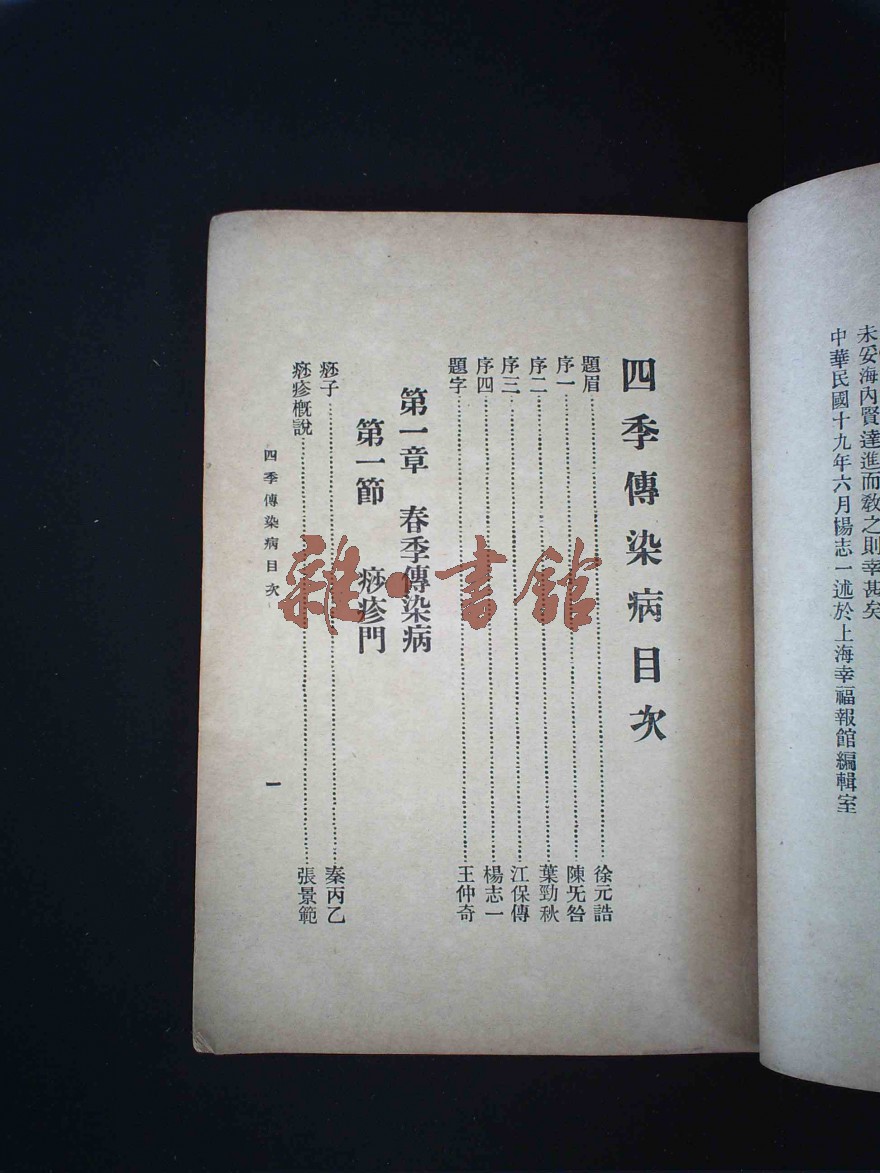 未妥海內賢達進而敎之則幸甚矣
中華民國十九年六月楊志一述於上海幸福報館編輯室
四季傳染病目次
題眉……徐元誥
序一……陳无咎
序二……葉勁秋
序三……江保傳
序四……楊志一
題字……王仲奇
第一章 春季傳染病
第一節 痧疹門
痧子……秦丙乙
痧疹槪說……張景範
四季傳染病目次
一
雜·書館